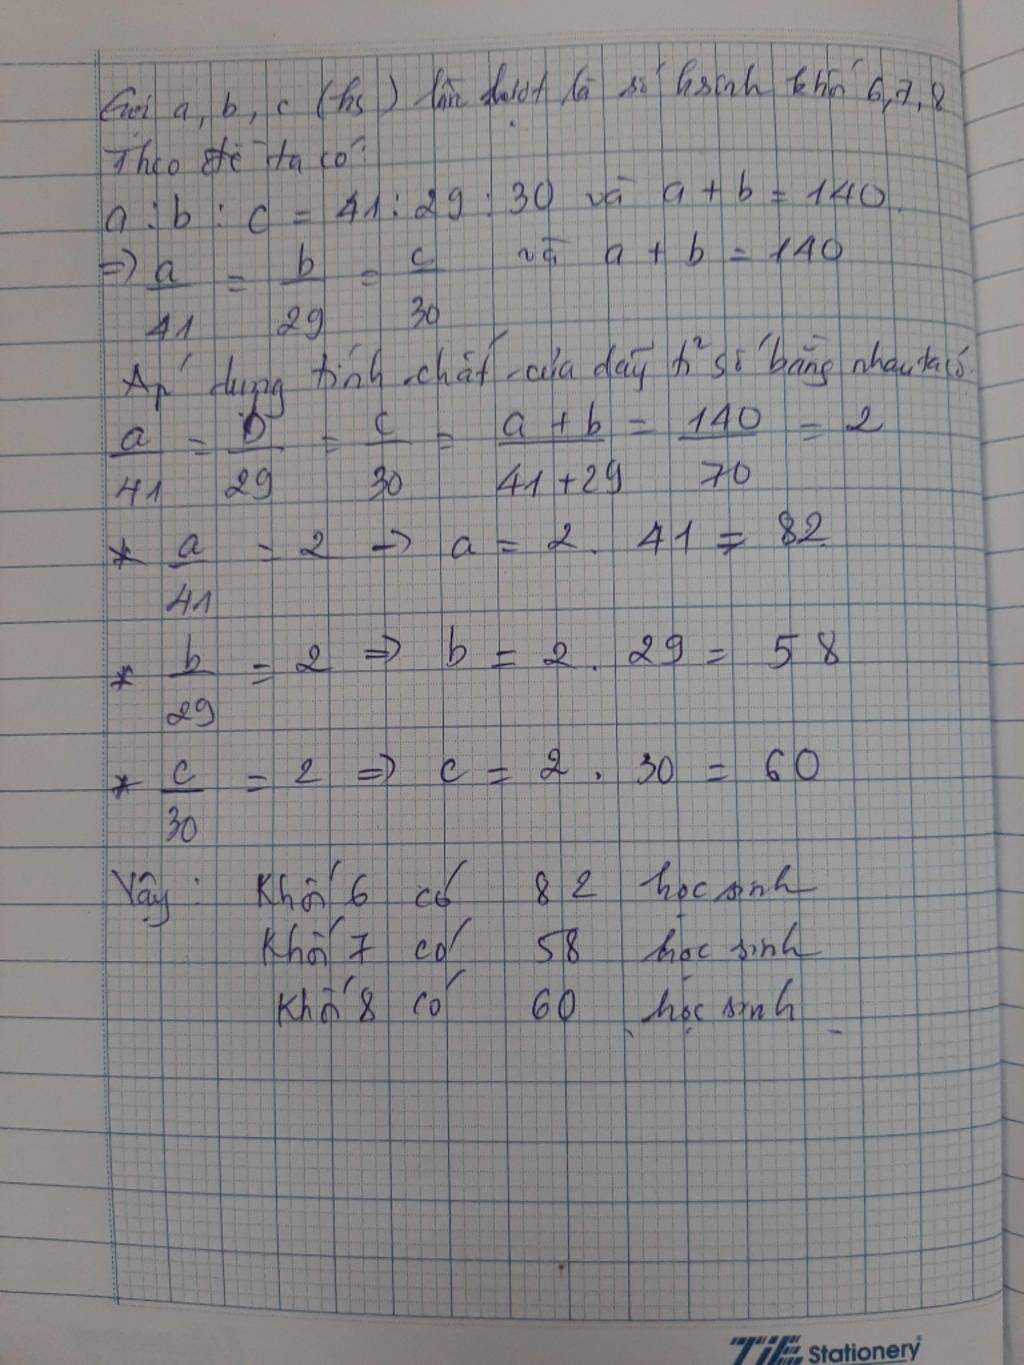 Gọi a, b, c (hs) lần lượt là số hsinh khối 6,7,8
Theo đề ta có:
a : b : c = 41 : 29 : 30 và a + b = 140.
=> a/41 = b/29 = c/30 và a + b = 140
Áp dụng tính chất của dãy tỉ số bằng nhau ta có
a/41 = b/29 = c/30 = a + b/41 + 29 = 140/70 = 2
* a/41 = 2 -> a = 2 . 41 = 82
* b/29 = 2 => b = 2 . 29 = 58
* c/30 = 2 => c = 2 . 30 = 60
Vậy : Khối 6 có 82 học sinh
Khối 7 có 58 học sinh
Khối 8 có 60 học sinh
TiE Stationery